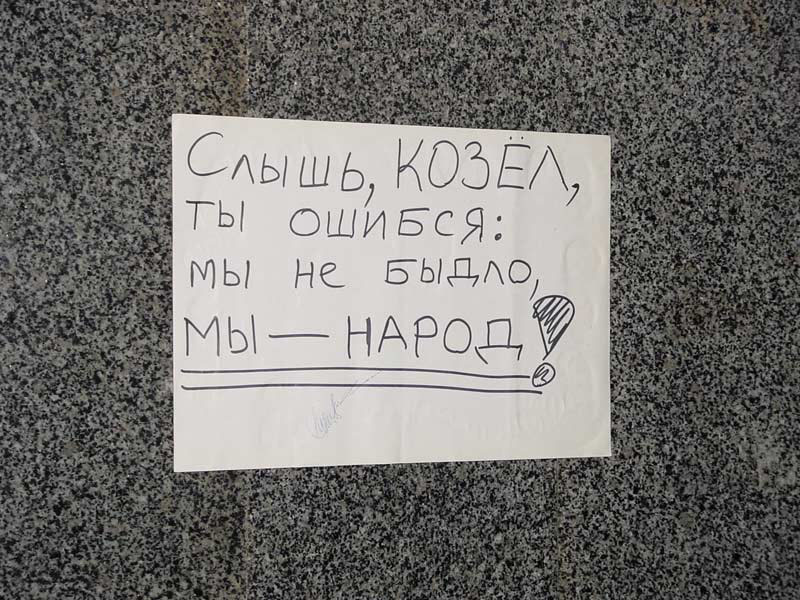 Слышь, КОЗЁЛ,
ты ошибся:
мы не быдло,
МЫ — НАРОД!